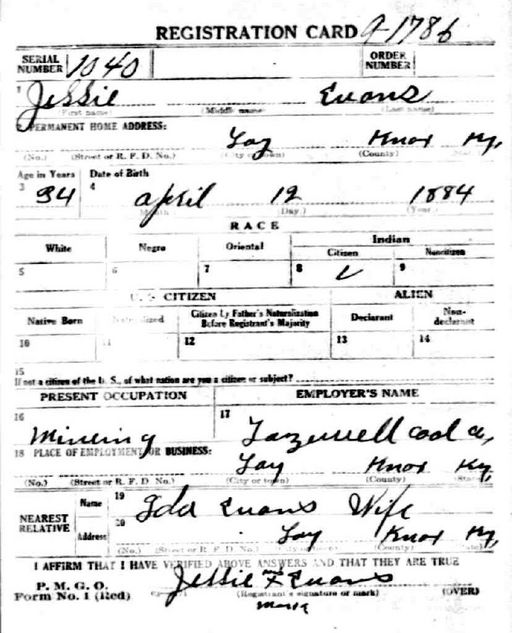 REGISTRATION CARD 9-1786
SERIAL NUMBER 1040 ORDER NUMBER
1 Jessie Evans
(First name) (Middle name) (Last name)
2 PERMANENT HOME ADDRESS:
Lay Knox Ky,
(No.) (Street or R. F. D. No.) (City or town) (County) (State)
Age in Years Date of Birth
3 34 4 April 12 1884
(Month) (Day) (Year)
RACE
White Negro Oriental Indian
Citizen Noncitizen
5 6 7 8 ✓ 9
U. S. CITIZEN ALIEN
Native Born Naturalized Citizen by Father's Naturalization Before Registrant's Majority Declarant Non-declarant
10 11 12 13 14
15
If not a citizen of the U. S., of what nation are you a citizen or subject?
PRESENT OCCUPATION EMPLOYER'S NAME
16 Mining 17 Tazewell coal
18 PLACE OF EMPLOYMENT OR BUSINESS:
Lay Knox Ky,
(No.) (Street or R. F. D. No.) (City or town) (County) (State)
NEAREST RELATIVE Name 19 Ida Evans Wife
Address 20 Lay Knox Ky,
(No.) (Street or R. F. D. No.) (City or town) (County) (State)
I AFFIRM THAT I HAVE VERIFIED ABOVE ANSWERS AND THAT THEY ARE TRUE
P. M. G. O.
Form No. 1 (Red) Jessie his X Evans
(Registrant's signature or mark) (OVER)
mark